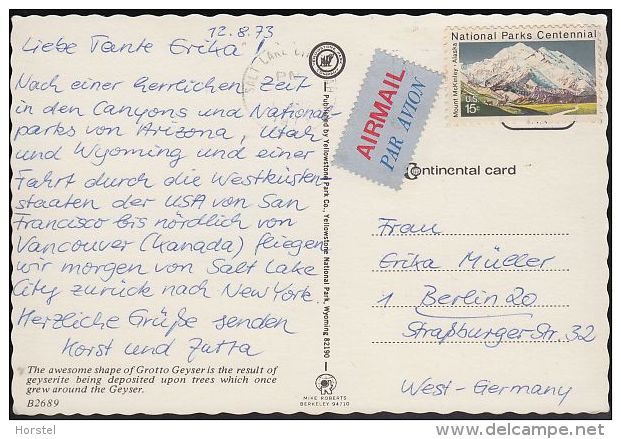 12.8.73
Liebe Tante Erika!
Nach einer herrlichen Zeit
in den Canyons und National-
parks von Arizona, Utah
und Wyoming und einer
Fahrt durch die Westküsten-
staaten der USA von San
Francisco bis nördlich von
Vancouver (Kanada) fliegen
wir morgen von Salt Lake
City zurück nach New York.
Herzliche Grüße senden
Horst und Jutta
The awesome shape of Grotto Geyser is the result of
geyserite being deposited upon trees which once
grew around the Geyser.
B2689
Published by Yellowstone Park Co., Yellowstone National Park, Wyoming 82190
MIKE ROBERTS
BERKELEY 94710
SALT LAKE
AIRMAIL
PAR AVION
National Parks Centennial
Mount McKinley · Alaska
U.S.
15c
Continental card
Frau
Erika Müller
1 Berlin 20
Straßburger Str. 32
West-Germany
Horstel
delcampe.net